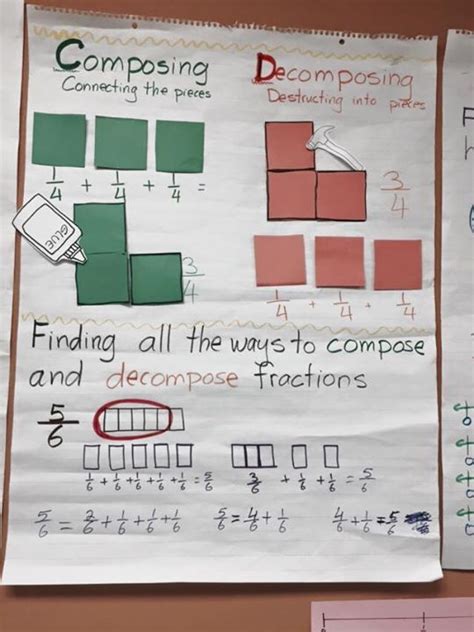 Composing
Connecting the pieces
1/4 + 1/4 + 1/4 =
GLUE
3/4
Decomposing
Destructing into pieces
3/4
1/4 + 1/4 + 1/4
Finding all the ways to compose
and decompose fractions
5/6
1/6 + 1/6 + 1/6 + 1/6 + 1/6 = 5/6
3/6 + 1/6 + 1/6 = 5/6
5/6 = 2/6 + 1/6 + 1/6 + 1/6
5/6 = 4/6 + 1/6
4/6 + 1/6 = 5/6